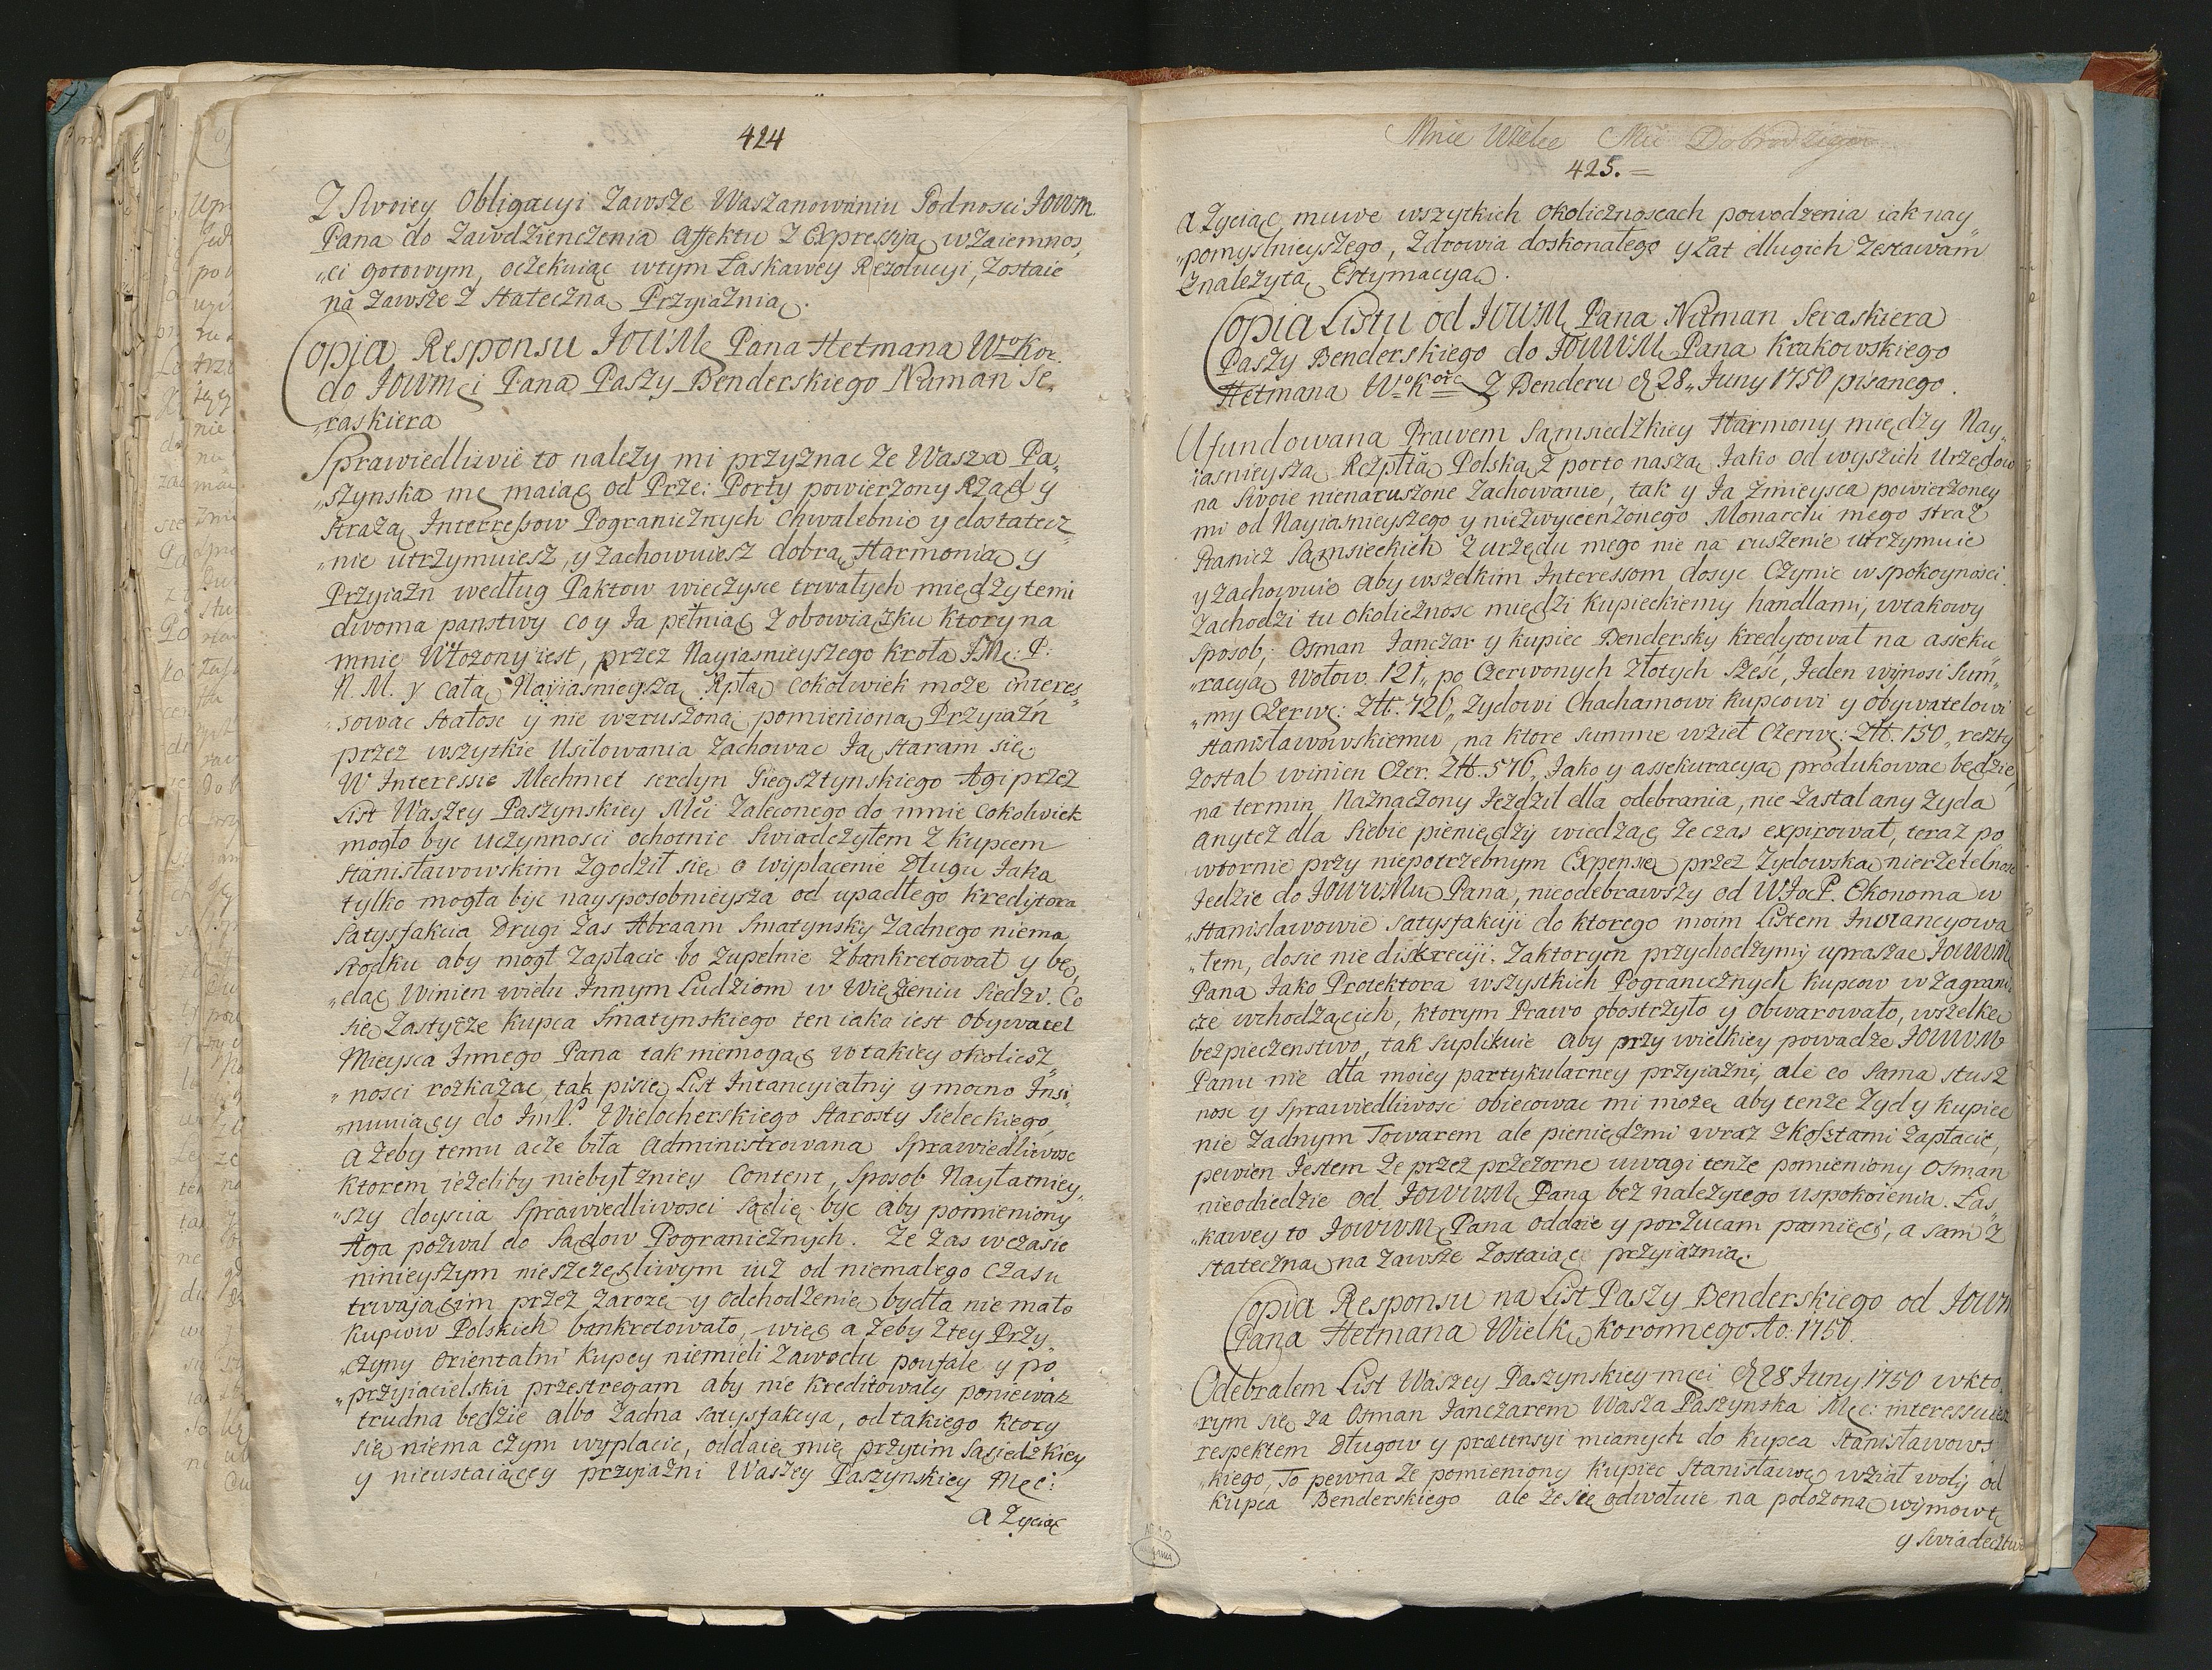 424
Z Swoiey Obligacyi zawsze Waszanowaniu Godnosci JOWM
Pana do Zawdzienczenia affektu Z Expressyią wzaiemnos
„ci gotowym, oczekuiąc wtym Łaskawey Rezolucyi, zostaie
na zawsze z stateczną Przyiaznią.
Copia Responsu JOWMci Pana Hetmana Wo Kor.
do JOWMci Pana Paszy Benderskiego Numan Se„
„raskiera
Sprawiedliwie to należy mi przyznac ze Wasza Pa„
„szynska mć maiąc od Prze: Porty powierzony Rząd y
straża Interressow Pogranicznych chwalebnie y dostatecz„
„nie utrzymuiesz, y zachowuiesz dobrą Harmonią y
Przyiazn według Paktow wieczysce trwałych między temi
dwoma panstwy co y Ja pełniąc z obowiązku ktory na
mnie Włożony iest, przez Nayiasnieyszego Krola JMć: P:
N. M. y całą Nayiasnieyszą Rptą cokolwiek może interes„
„sowac stałosc y nie wzruszoną pomienioną Przyiaźn
przez wszytkie Usiłowania zachowac Ja staram się.
W Interessie Mechmet serdyn Giegsztynskiego Agi przez
List Waszey Paszynskiey Mci zaleconego do mnie cokolwiek
mogło byc uczynnosci ochotnie swiadczyłem z kupcem
stanisławowskim zgodził się o wypłacenie Długu Jaka
tylko mogła byc naysposobnieysza od upadłego kredytora
satysfakcia Drugi zas Abraam Smatynsky Zadnego niema
srodku aby mogł zapłacic bo zupelnie zbankretował y bę„
„dąc Winien wielu Innym Ludziom w Więzieniu siedzi. Co
się zastycze kupca Smatynskiego ten iako iest obywatel
Mieysca Innego Pana tak niemogąc w takiey okolicz„
„nosci rozkazac, tak piszę List Intancyialny y mocno Insi„
„nuuiący do ImP. Wielocherskiego Starosty Sieleckiego,
a żeby temu adze biła administrowana Sprawiedliwosc
ktorem ieżeliby niebył zniey Content, sposob Naylatniey„
„szy doyscia Sprawiedliwosci sądię byc aby pomieniony
Aga pozwal do Sądow Pogranicznych. Ze zas wczasie
ninieyszym nieszczęsliwym iuż od niemalego czasu
trwaiącim przez zarozę y odchodzenie bydła nie mało
kupcow Polskich bankretowało, więc a żeby z tey Przy„
„czyny orientalni kupcy niemieli zawodu poufale y po
„przyiacielsku przestregam aby nie kreditowaly poniewaz
trudna będzie albo żadna satysfakcya, od takiego ktory
się niema czym wyplacic, oddaię mię przytim sąsiedzkiey
y nieustaiącey przyiaźni Waszey Paszynskiey Mći:
a życiąc
Mnie Wielce Mći Dobrodzieju
425.=
a życiąc mowe wszytkich okolicznoscach powodzenia iak nay„
„pomyslnieyszego, zdrowia doskonałego y Lat dlugich zestawam
znależytą Estymacyą.
Copia Listu od JOWM Pana Numan Seraskiera
Paszy Benderskiego do JOWWM Pana Krakowskiego
Hetmana Wo Kore Z Benderu d 28„ Juny 1750 pisanego.
Ufundowana Prawem Sąmsiedzkiey Harmony między Nay„
iasnieyszą Rezpltą Polską z porto naszą Jako od wyszich Urzędow
na swoie nienaruszone zachowanie, tak y Ja zmieysca powierzoney
mi od Nayiasnieyszego y niezwycenzonego Monarchi mego straż
Hranicz Sąmsieckich z urzędu mego nie na ruszenie utrzymuie
y zachowuie aby wszelkim Interessom dosyc czynic w spokoynosci.
zachodzi tu okolicznosc międzi kupieckiemy handlami, wtakowy
sposob; Osman Janczar y kupiec Bendersky kredytował na asseku„
„racyą Wołow. 121„ po Czerwonych Złotych sześć, Jeden wynosi sum„
„my Czerwc: Złł. 726„ Zydowi Chachamowi kupcowi y obywatelowi
stanisławowskiemu, na ktore summe wzieł Czerwc: Złł. 150„ reszty
zostal winien Czer. Złł. 576„ Jako y assekuracyą produkowac będzie,
na termin Naznaczony Jezdzil dla odebrania, nie zastal any Zyda
anyteż dla siebie pieniędzy wiedząc ze czas expirował, teraz po
wtornie przy niepotrzebnym Expensie przez Zydowską nierzetelnosc
Jedzie do JOWWMu Pana, nieodebrawszy od WJoP. Ekonoma w
„stanisławowie satysfakciji do ktorego moim Listem Instancyowa
„tem, dosie nie diskreciji. Zaktorym przychodzymy upraszac JOWWM
Pana Jako Protektora wszystkich Pogranicznych kupcow w zagrani„
cze wchodzących, ktorym Prawo obostrzyło y obwarowało, wszelke
bezpieczenstwo, tak suplikuie aby przy wielkiey powadze JOWWM
Panu nie dla moiey partykularney przyiażni, ale co sama słusz
nosc y sprawiedliwosc obiecowac mi może aby tenże Zyd y kupiec
nie żadnym Towarem ale pieniędzmi wraz z kosztami zapłacic,
pewien Jestem że przez przezorne uwagi tenże pomieniony Osman
nieodiedzie od JOWWM Pana bez należytego uspokoienia. Łas„
„kawey to JOWWM Pana oddaie y porzucam pamięci, a sam z
stateczną na zawsze zostaiąc przyiaznią.
Copia Responsu na List Paszy Benderskiego od JOWM
Pana Hetmana Wielko Koronnego Ao: 1750.
Odebralem List Waszey Paszynskiey mći d 28 Juny 1750 wkto„
„rym się za Osman Janczarem Wasza Paszynska Mć: interessuiesz
respektem długow y prætensyi mianych do kupca stanisławows„
„kiego, To pewna ze pomieniony kupiec Stanisławo wziął woły od
kupca Benderskiego ale ze się odwołuie na położoną wymowę
y swiadectwo